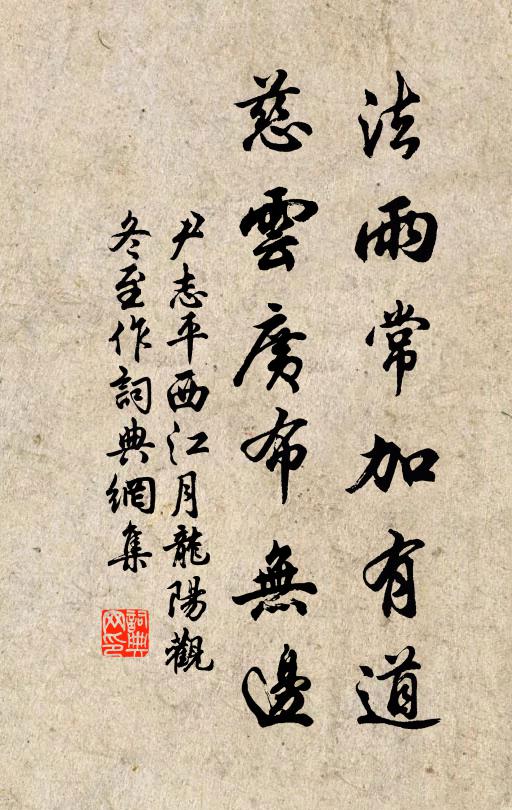 法雨常加有道
慈雲廣布無邊
尹志平西江月龍陽觀
冬至作詞典網集
詞典
网印